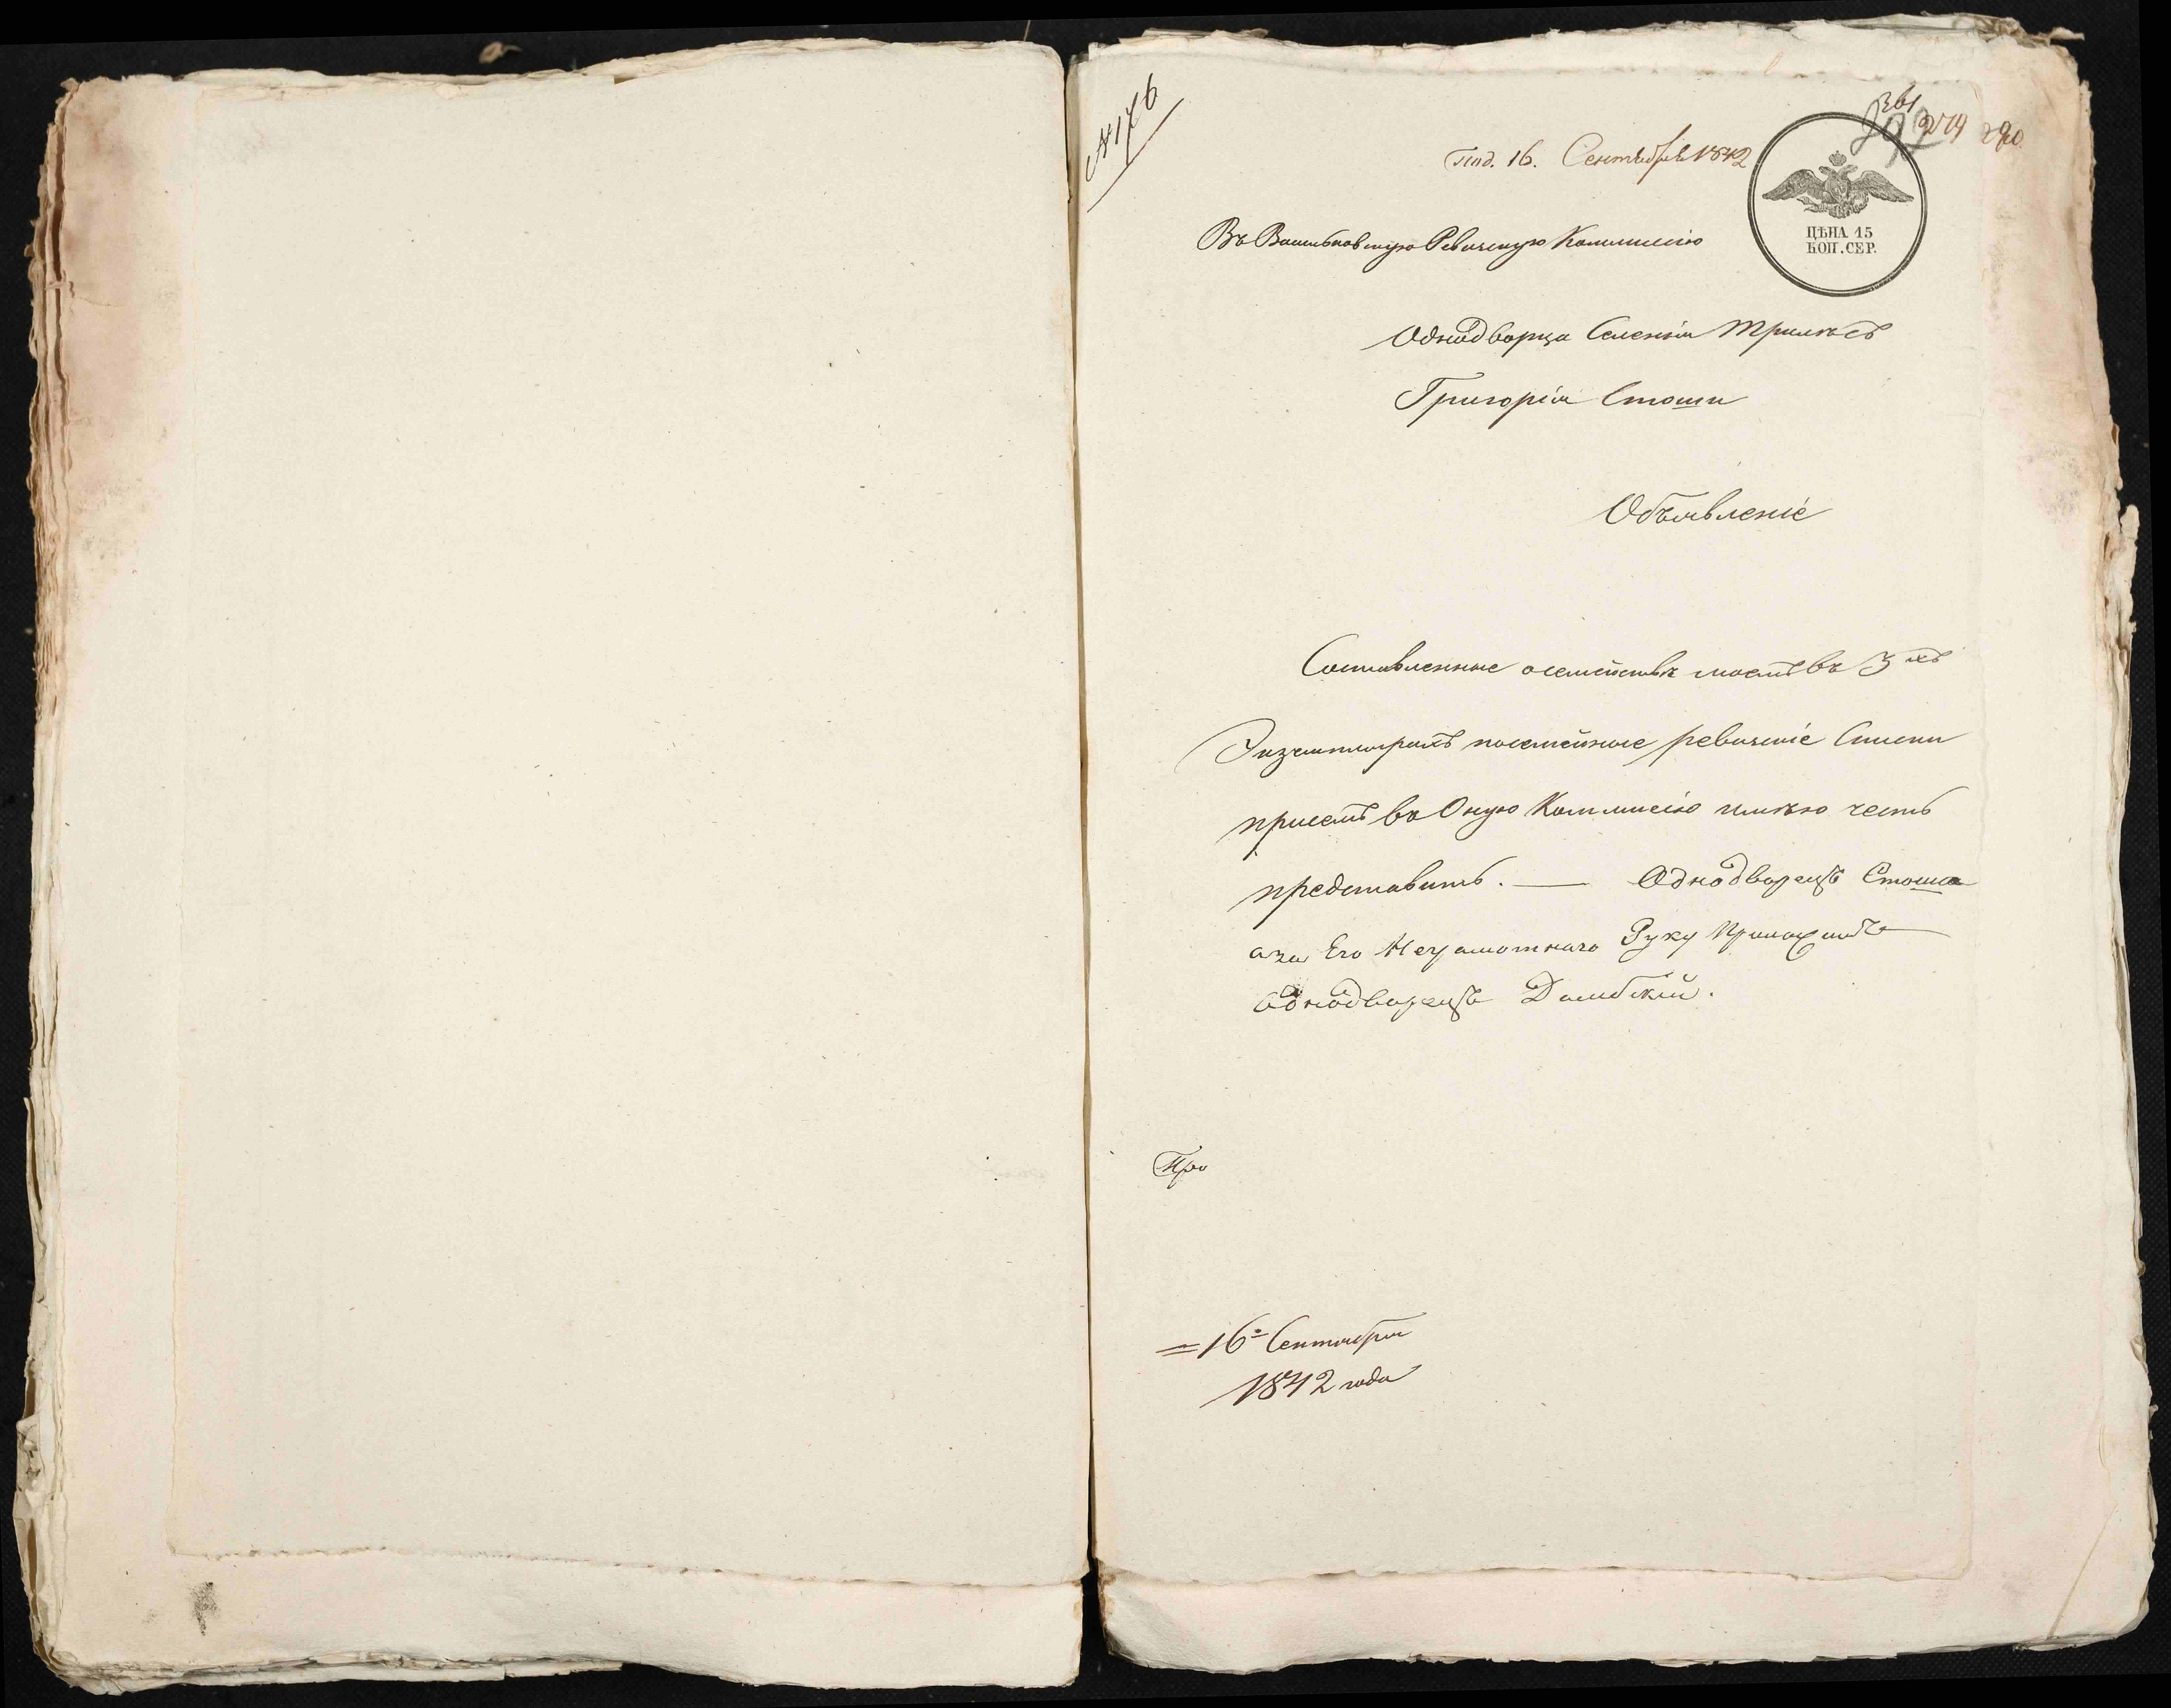 № 176
361
274 290
Под. 16. Сентября 1842
ЦѢНА 15
КОП. СЕР.
Въ Васильковскую Ревизскую Коммисію
Однодворца Селенія Трилѣсъ
Григорія Стоши
Объявленіе
Составленные осемействѣ моемъ въ 3хъ
Экземплярахъ посемейные ревизскіе Списки
присемъ въ Оную Коммисію имѣю честь
представить. — Однодворецъ Стоша
а за Его Неграмотнаго Руку Приложилъ
Однодворецъ Домбскій.
= 16го Сентября
1842 года